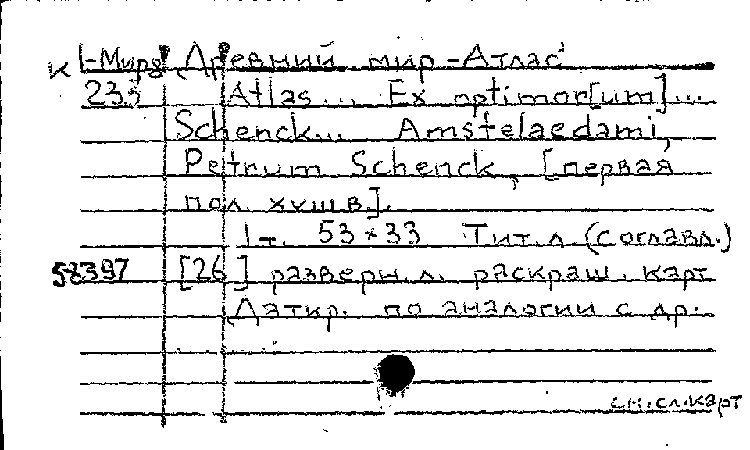 К 1-Мир Древний мир - Атлас
233 Atlas... Ex optimor[um]...
Schenck... Amstelaedami,
Petrum Schenck, [первая
пол. XVIII в.].
1 т. 53×33 Тит. л (с оглавл.)
58397 [26] разверн. л. раскраш. карт
Датир. по аналогии с др.
см. сл. карт